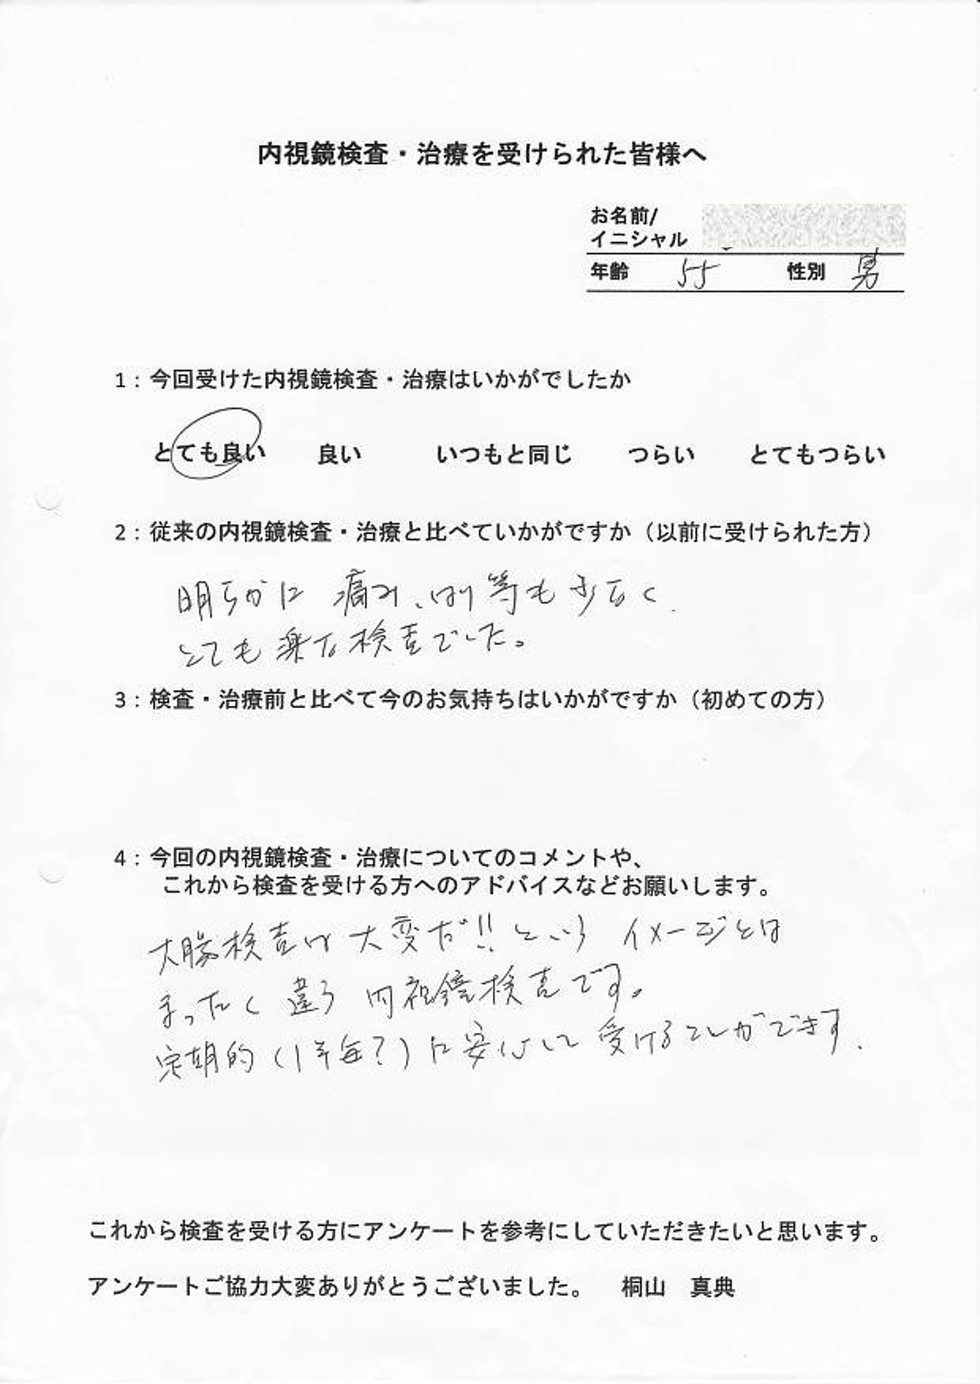 内視鏡検査・治療を受けられた皆様へ
お名前/
イニシャル
年齢 55 性別 男
1：今回受けた内視鏡検査・治療はいかがでしたか
とても良い 良い いつもと同じ つらい とてもつらい
2：従来の内視鏡検査・治療と比べていかがですか（以前に受けられた方）
明らかに 痛み、はり等も少なく、
とても楽な検査でした。
3：検査・治療前と比べて今のお気持ちはいかがですか（初めての方）
4：今回の内視鏡検査・治療についてのコメントや、
これから検査を受ける方へのアドバイスなどお願いします。
大腸検査は大変だ!!という イメージとは
まったく違う 内視鏡検査です。
定期的（1年？）に安心して 受けることができます.
これから検査を受ける方にアンケートを参考にしていただきたいと思います。
アンケートご協力大変ありがとうございました。 桐山 真典